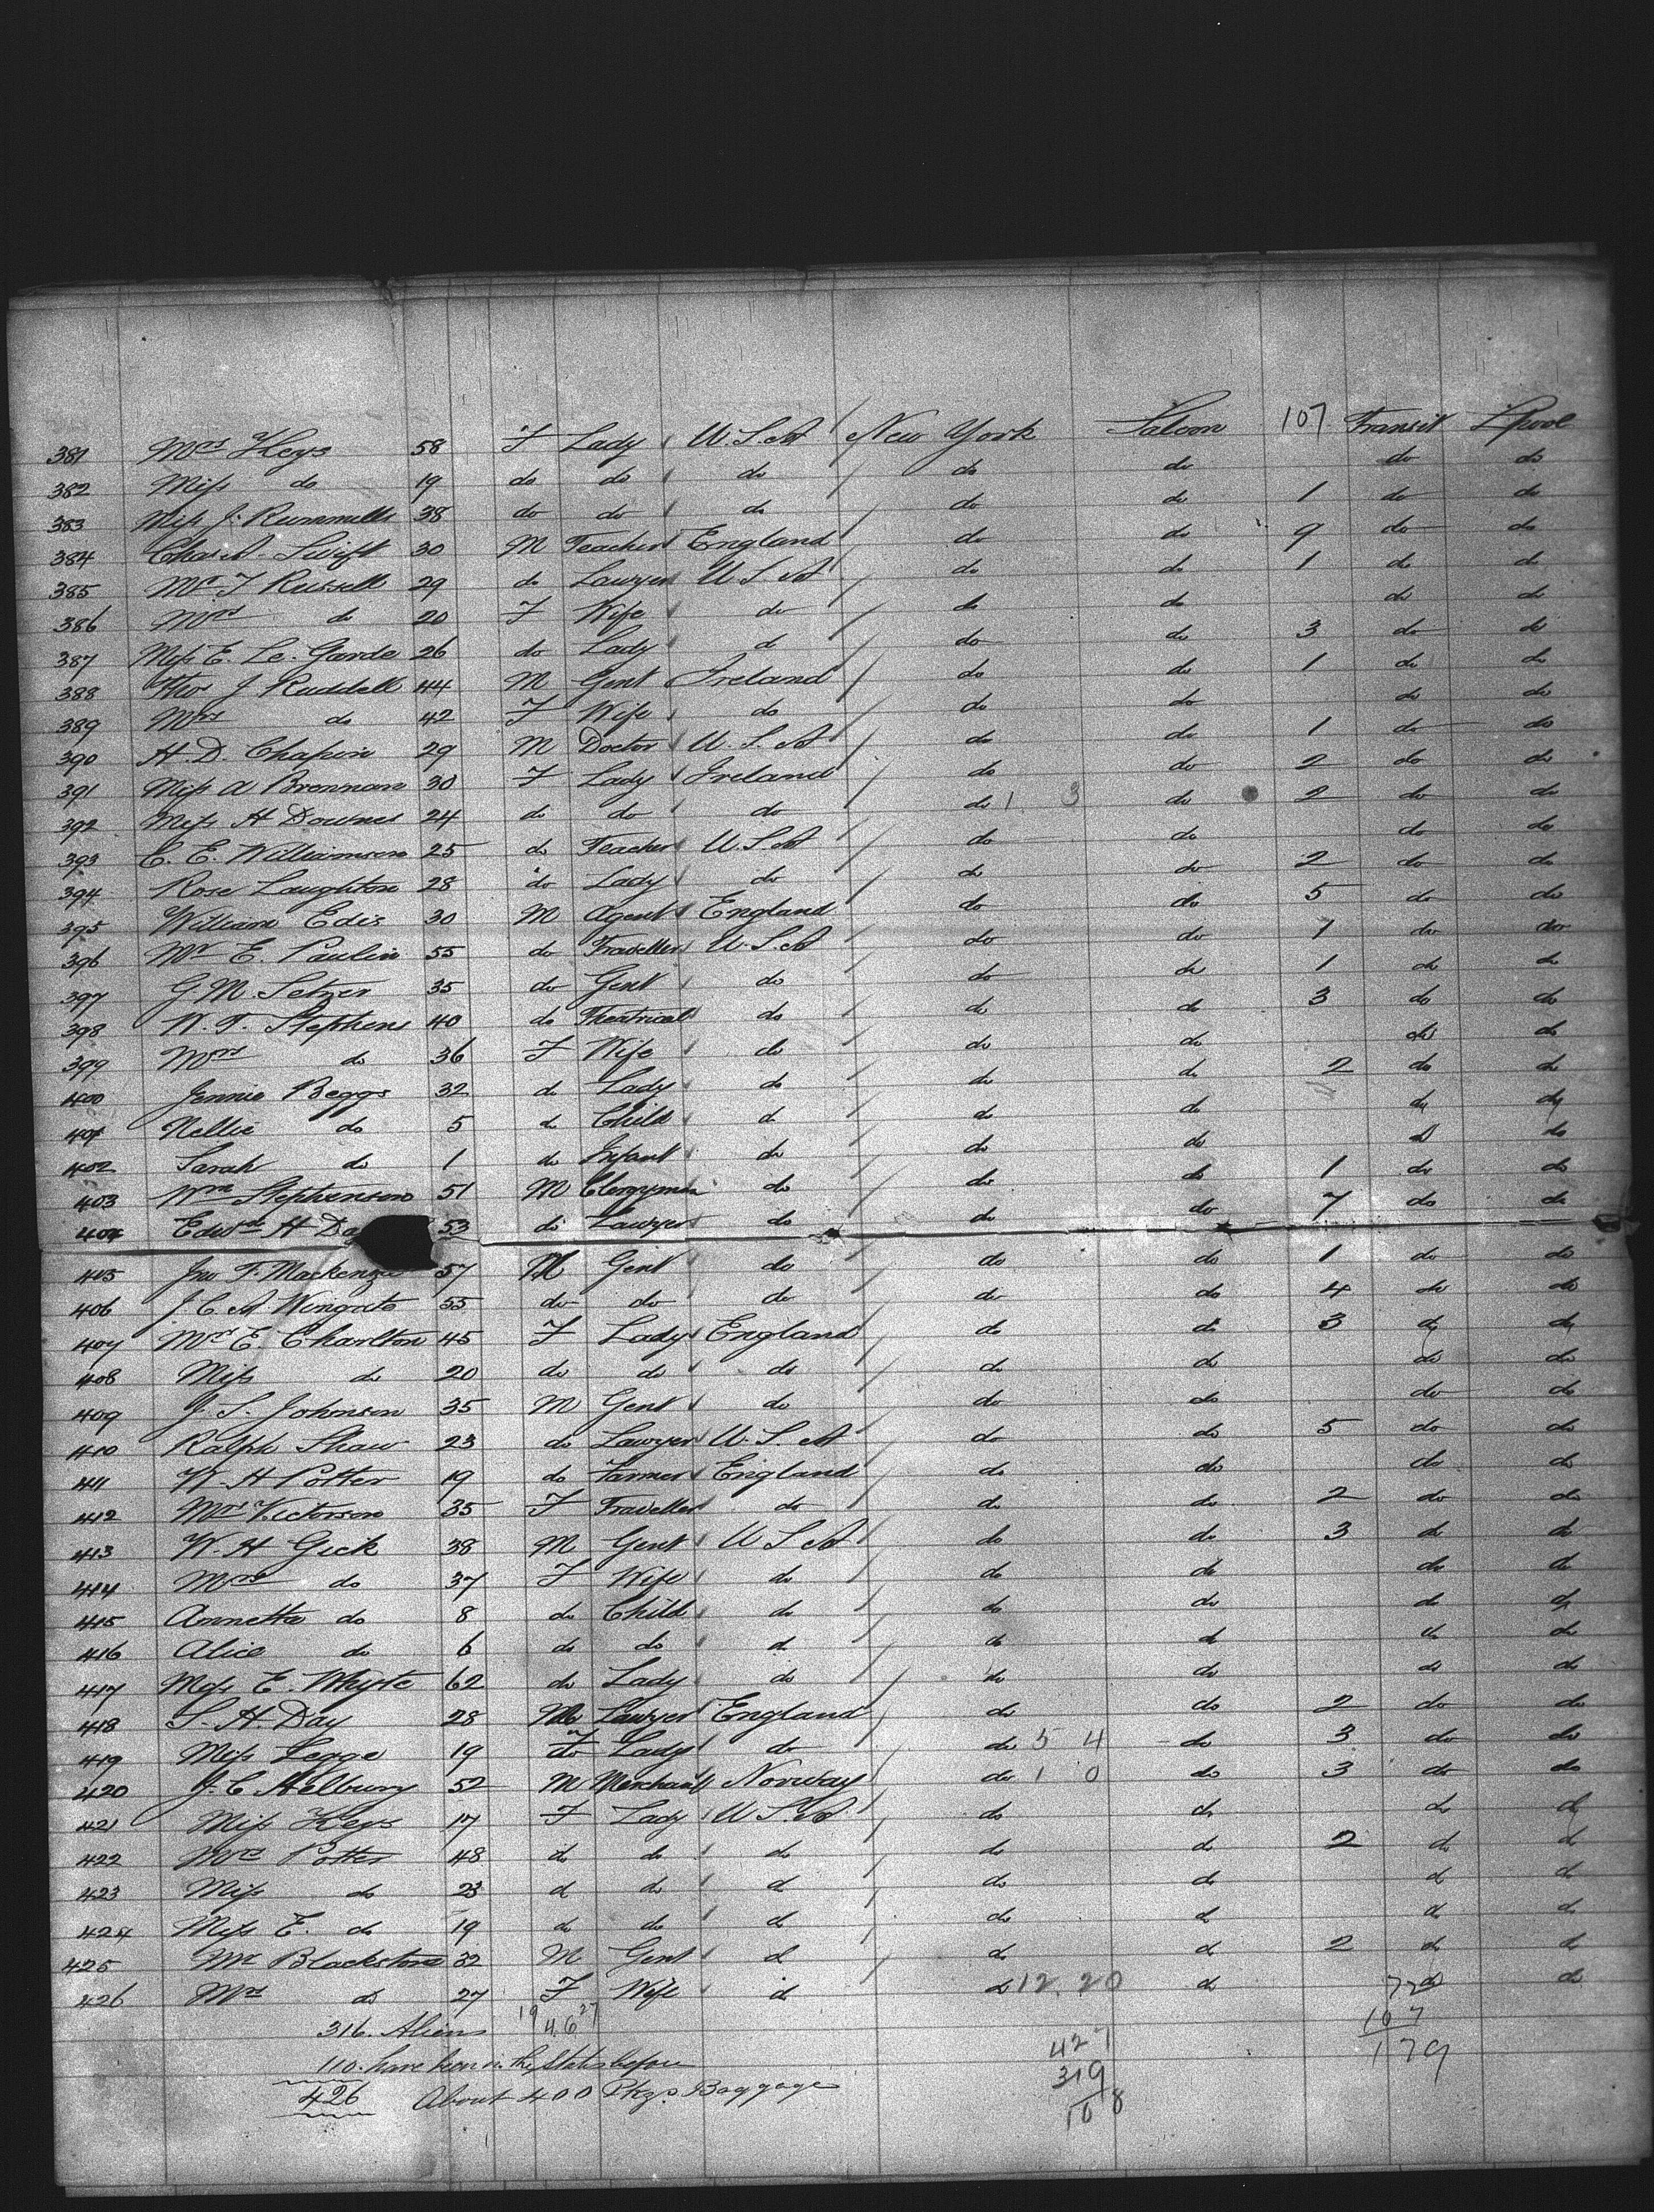 381 Mrs Keys 58 F Lady U.S.A New York Saloon 107 Transit L'pool
382 Miss do 19 do do do do do do do
383 Miss J. Rummells 38 do do do do do 1 do do
384 Chas A. Swift 30 M Teacher England do do 9 do do
385 Mr T Russell 29 do Lawyer U.S.A do do 1 do do
386 Mrs do 20 F Wife do do do do do
387 Miss E. Le. Garde 26 do Lady do do do 3 do do
388 Thos J Ruddell 44 M Gent Ireland do do 1 do do
389 Mrs do 42 F Wife do do do do do
390 H.D. Chapin 29 M Doctor U.S.A do do 1 do do
391 Miss A Brennan 30 F Lady Ireland do do 2 do do
392 Miss H Downes 24 do do do do 1 3 do 2 do do
393 C. E. Williamson 25 do Teacher U.S.A do do do do
394 Rose Laughton 28 do Lady do do do 2 do do
395 William Edis 30 M Agent England do do 5 do do
396 Mr E. Paulin 55 do Traveller U.S.A do do 1 do do
397 G.M. Setzer 35 do Gent do do do 1 do do
398 W.T. Stephens 40 do Theatrical do do do 3 do do
399 Mrs do 36 F Wife do do do do do
400 Jennie Beggs 32 do Lady do do do 2 do do
401 Nellie do 5 do Child do do do do do
402 Sarah do 1 do Infant do do do do do
403 Wm Stephenson 51 M Clergyman do do do 1 do do
404 Edwd H Da 53 do Lawyer do do do 7 do do
405 Jno T. Mackenzie 57 M Gent do do do 1 do do
406 J.C.A. Wingrite 55 do do do do do 4 do do
407 Mrs E. Charlton 45 F Lady England do do 3 do do
408 Miss do 20 do do do do do do do
409 J. S. Johnson 35 M Gent do do do do do
410 Ralph Shaw 23 do Lawyer U.S.A do do 5 do do
411 W.H Potter 19 do Farmer England do do do do
412 Mrs Victorson 35 F Traveller do do do 2 do do
413 W.H Gick 38 M Gent U.S.A do do 3 do do
414 Mrs do 37 F Wife do do do do do
415 Annetta do 8 do Child do do do do do
416 Alice do 6 do do do do do do do
417 Miss E. Whyte 62 do Lady do do do do do
418 S.H. Day 28 M Lawyer England do do 2 do do
419 Miss Legge 19 F Lady do do 5 4 do 3 do do
420 J.C. Helbury 52 M Merchant Norway do 1 0 do 3 do do
421 Miss Keys 17 F Lady U.S.A do do do do
422 Mrs Potter 48 do do do do do 2 do do
423 Miss do 23 do do do do do do do
424 Miss E. do 19 do do do do do do do
425 Mr Blackstone 32 M Gent do do do 2 do do
426 Mrs do 27 F Wife do do 12.20 do do
316. Aliens 19 4.6 27
110. have been in the States before
426 About 400 Pkgs. Baggage
427
319
108
72
107
179